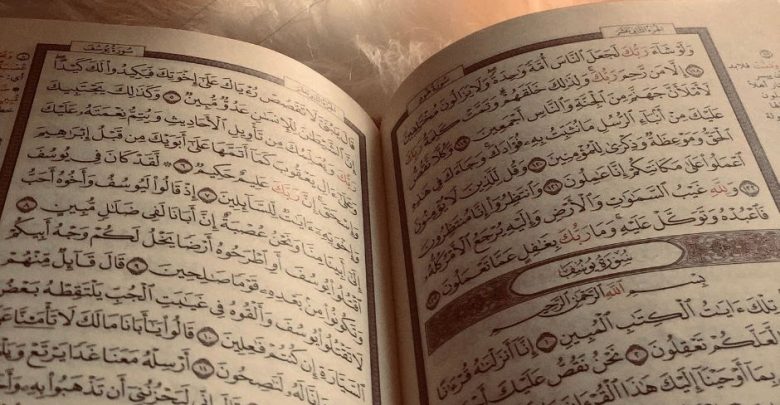 سُورَةُ هُودٍ
الجُزْءُ الثَّانِي عَشَرَ
وَلَوْ شَآءَ رَبُّكَ لَجَعَلَ ٱلنَّاسَ أُمَّةً وَٰحِدَةً وَلَا يَزَالُونَ مُخْتَلِفِينَ
١١٨ إِلَّا مَن رَّحِمَ رَبُّكَ وَلِذَٰلِكَ خَلَقَهُمْ وَتَمَّتْ كَلِمَةُ رَبِّكَ
لَأَمْلَأَنَّ جَهَنَّمَ مِنَ ٱلْجِنَّةِ وَٱلنَّاسِ أَجْمَعِينَ ١١٩ وَكُلًّا نَّقُصُّ
عَلَيْكَ مِنْ أَنۢبَآءِ ٱلرُّسُلِ مَا نُثَبِّتُ بِهِۦ فُؤَادَكَ وَجَآءَكَ فِى هَٰذِهِ
ٱلْحَقُّ وَمَوْعِظَةٌ وَذِكْرَىٰ لِلْمُؤْمِنِينَ ١٢٠ وَقُل لِّلَّذِينَ لَا يُؤْمِنُونَ
ٱعْمَلُوا۟ عَلَىٰ مَكَانَتِكُمْ إِنَّا عَٰمِلُونَ ١٢١ وَٱنتَظِرُوٓا۟ إِنَّا مُنتَظِرُونَ
١٢٢ وَلِلَّهِ غَيْبُ ٱلسَّمَٰوَٰتِ وَٱلْأَرْضِ وَإِلَيْهِ يُرْجَعُ ٱلْأَمْرُ كُلُّهُۥ
فَٱعْبُدْهُ وَتَوَكَّلْ عَلَيْهِ وَمَا رَبُّكَ بِغَٰفِلٍ عَمَّا تَعْمَلُونَ ١٢٣
سُورَةُ يُوسُفَ
بِسْمِ ٱللَّهِ ٱلرَّحْمَٰنِ ٱلرَّحِيمِ
تِلْكَ ءَايَٰتُ ٱلْكِتَٰبِ ٱلْمُبِينِ ١ إِنَّآ أَنزَلْنَٰهُ قُرْءَٰنًا
لَّعَلَّكُمْ تَعْقِلُونَ ٢ نَحْنُ نَقُصُّ عَلَيْكَ أَحْسَنَ
بِمَآ أَوْحَيْنَآ إِلَيْكَ هَٰذَا ٱلْقُرْءَانَ
سُورَةُ يُوسُفَ
قَالَ يَٰبُنَىَّ لَا تَقْصُصْ رُءْيَاكَ عَلَىٰٓ إِخْوَتِكَ فَيَكِيدُوا۟ لَكَ كَيْدًا
إِنَّ ٱلشَّيْطَٰنَ لِلْإِنسَٰنِ عَدُوٌّ مُّبِينٌ ٥ وَكَذَٰلِكَ يَجْتَبِيكَ
رَبُّكَ وَيُعَلِّمُكَ مِن تَأْوِيلِ ٱلْأَحَادِيثِ وَيُتِمُّ نِعْمَتَهُۥ عَلَيْكَ
وَعَلَىٰٓ ءَالِ يَعْقُوبَ كَمَآ أَتَمَّهَا عَلَىٰٓ أَبَوَيْكَ مِن قَبْلُ إِبْرَٰهِيمَ
وَإِسْحَٰقَ إِنَّ رَبَّكَ عَلِيمٌ حَكِيمٌ ٦ لَّقَدْ كَانَ فِى يُوسُفَ
وَإِخْوَتِهِۦٓ ءَايَٰتٌ لِّلسَّآئِلِينَ ٧ إِذْ قَالُوا۟ لَيُوسُفُ وَأَخُوهُ أَحَبُّ
إِلَىٰٓ أَبِينَا مِنَّا وَنَحْنُ عُصْبَةٌ إِنَّ أَبَانَا لَفِى ضَلَٰلٍ مُّبِينٍ ٨
ٱقْتُلُوا۟ يُوسُفَ أَوِ ٱطْرَحُوهُ أَرْضًا يَخْلُ لَكُمْ وَجْهُ أَبِيكُمْ
وَتَكُونُوا۟ مِنۢ بَعْدِهِۦ قَوْمًا صَٰلِحِينَ ٩ قَالَ قَآئِلٌ مِّنْهُمْ
لَا تَقْتُلُوا۟ يُوسُفَ وَأَلْقُوهُ فِى غَيَٰبَتِ ٱلْجُبِّ يَلْتَقِطْهُ بَعْضُ
ٱلسَّيَّارَةِ إِن كُنتُمْ فَٰعِلِينَ ١٠ قَالُوا۟ يَٰٓأَبَانَا مَا لَكَ لَا تَأْمَ۫نَّا عَلَىٰ
وَإِنَّا لَهُۥ لَنَٰصِحُونَ ١١ أَرْسِلْهُ مَعَنَا غَدًا يَرْتَعْ
إِنِّى لَيَحْزُنُنِىٓ أَن تَذْهَبُوا۟ بِهِۦ